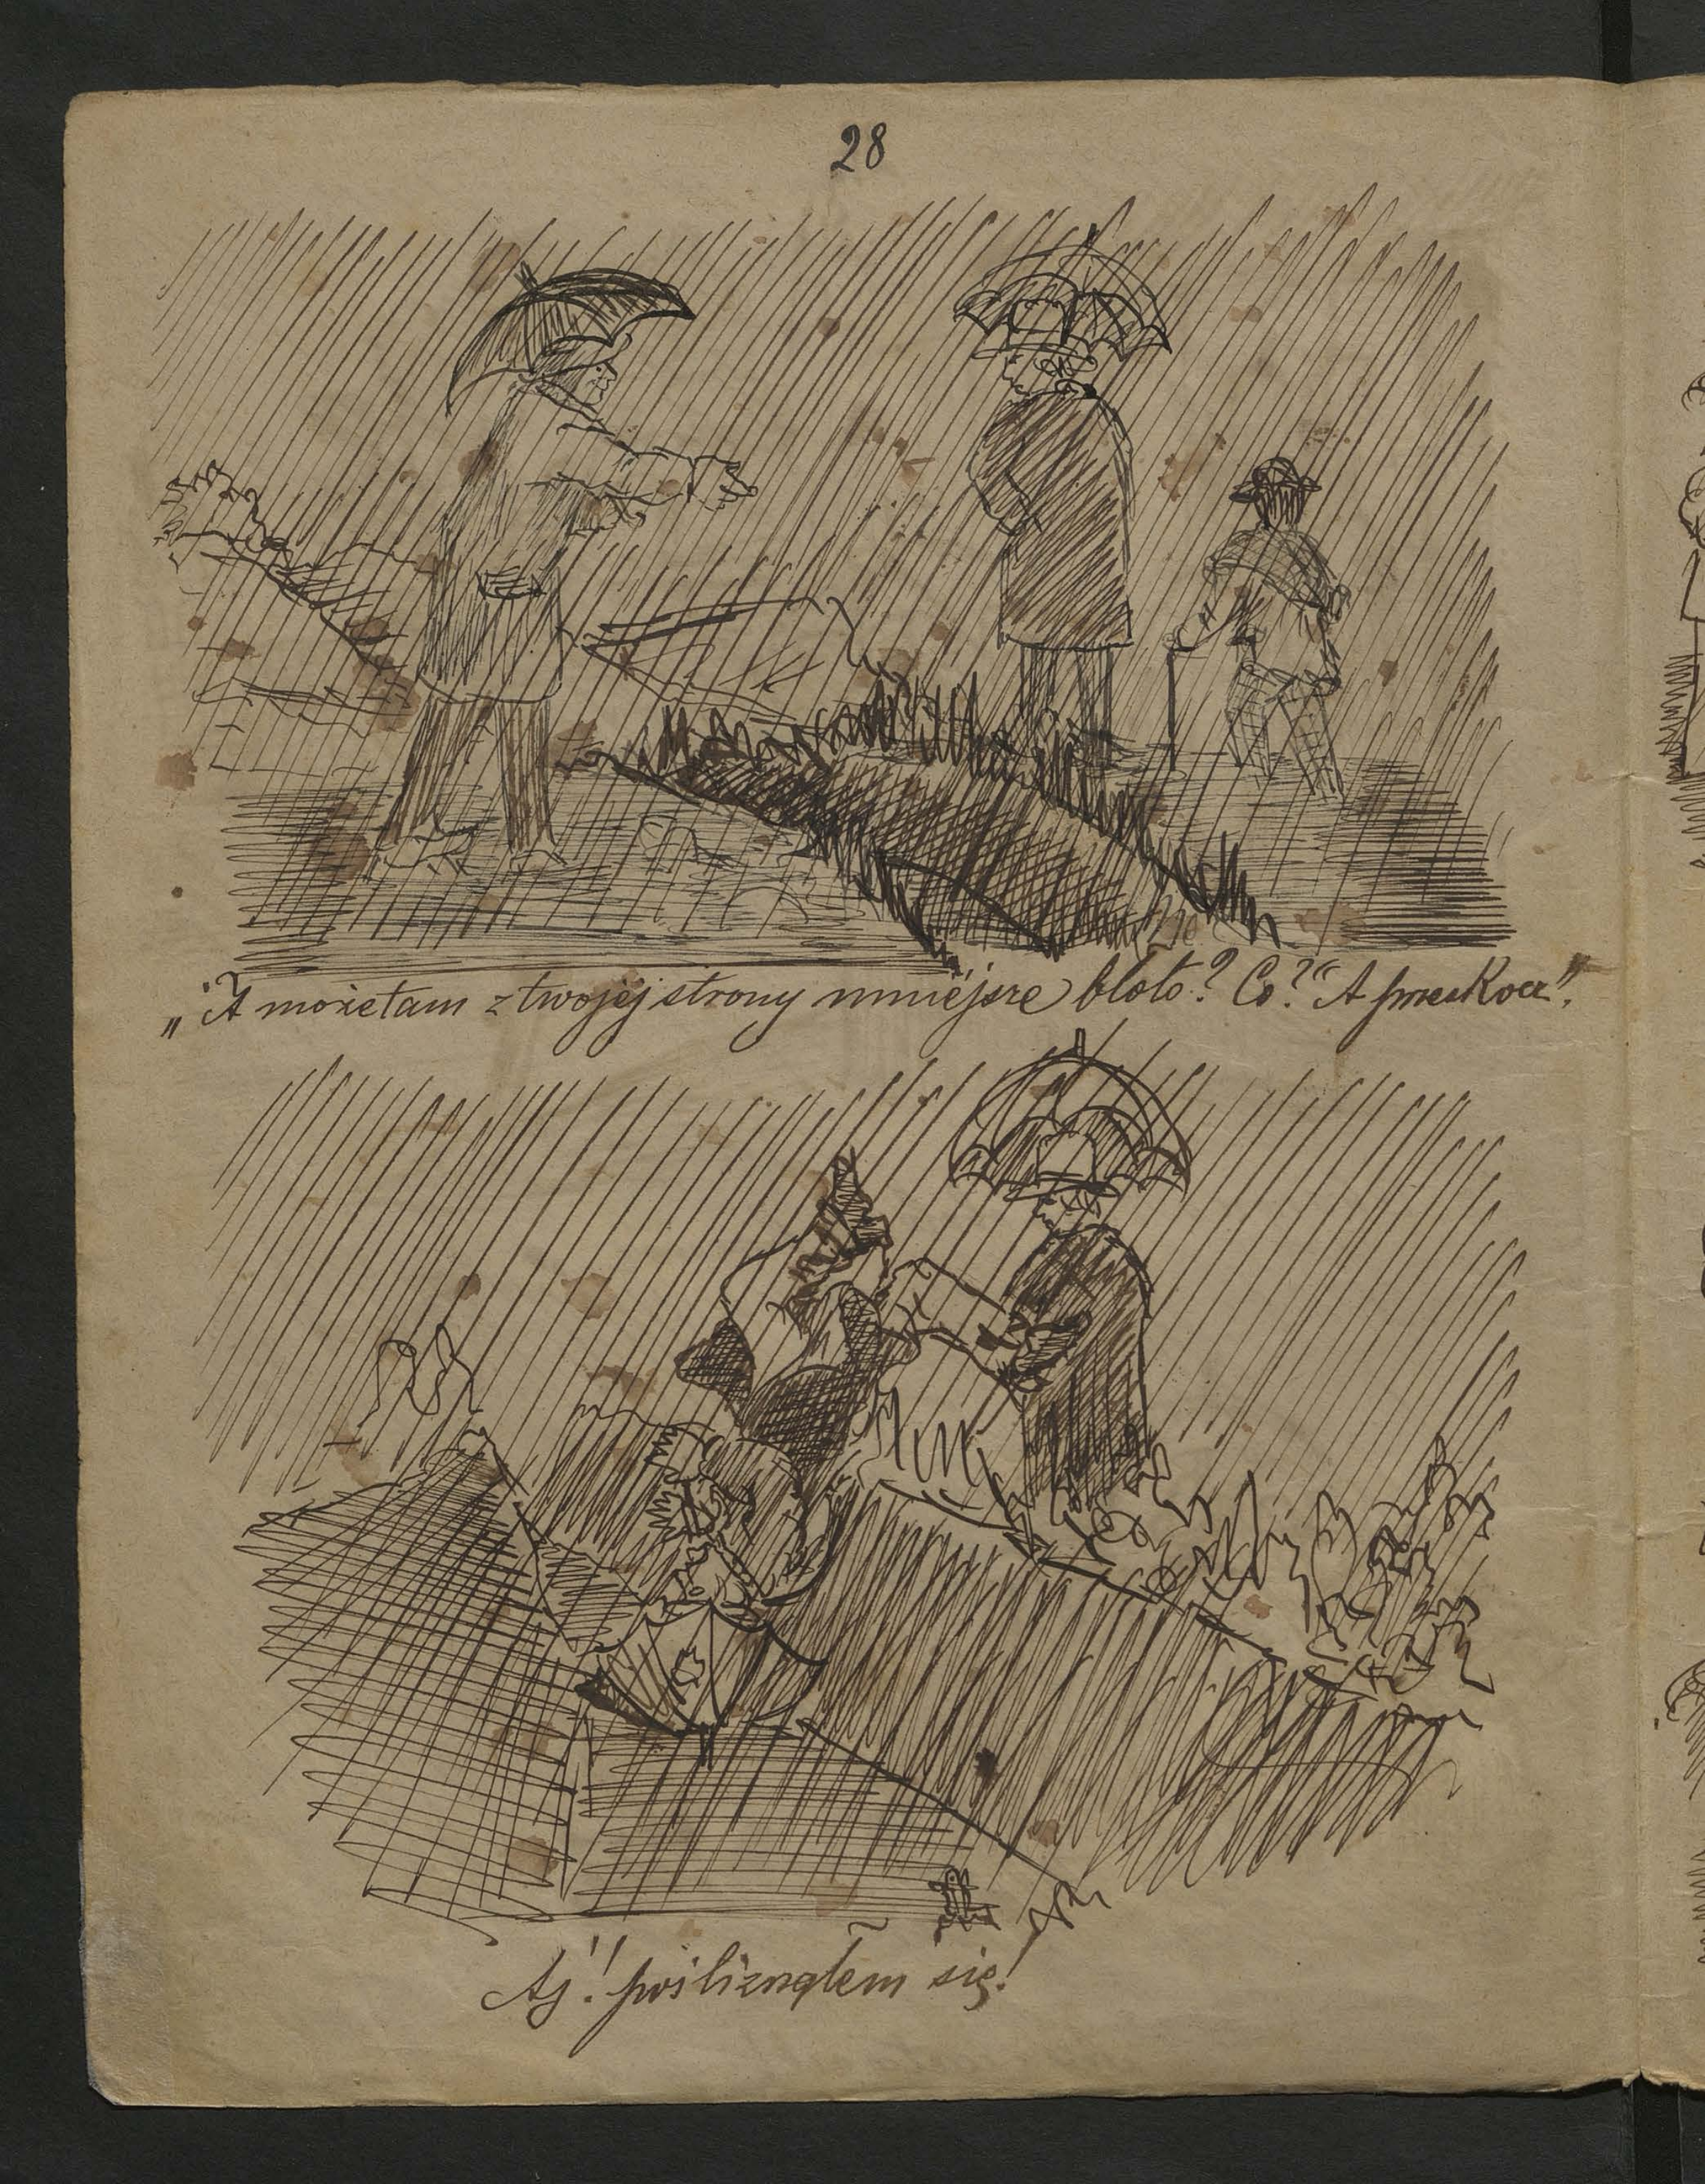 28
„A możetam z twojej strony mniejsze błoto? Co?“ A przeskocz".
Aj! pośliznąłem się!